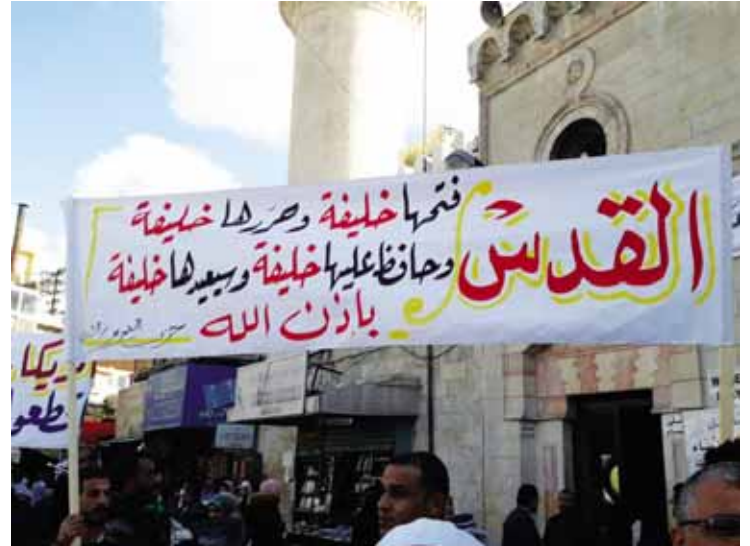 القدس
فتحها خليفة وحررها خليفة
وحافظ عليها خليفة وسيعيدها خليفة
بإذن الله
حزب التحرير